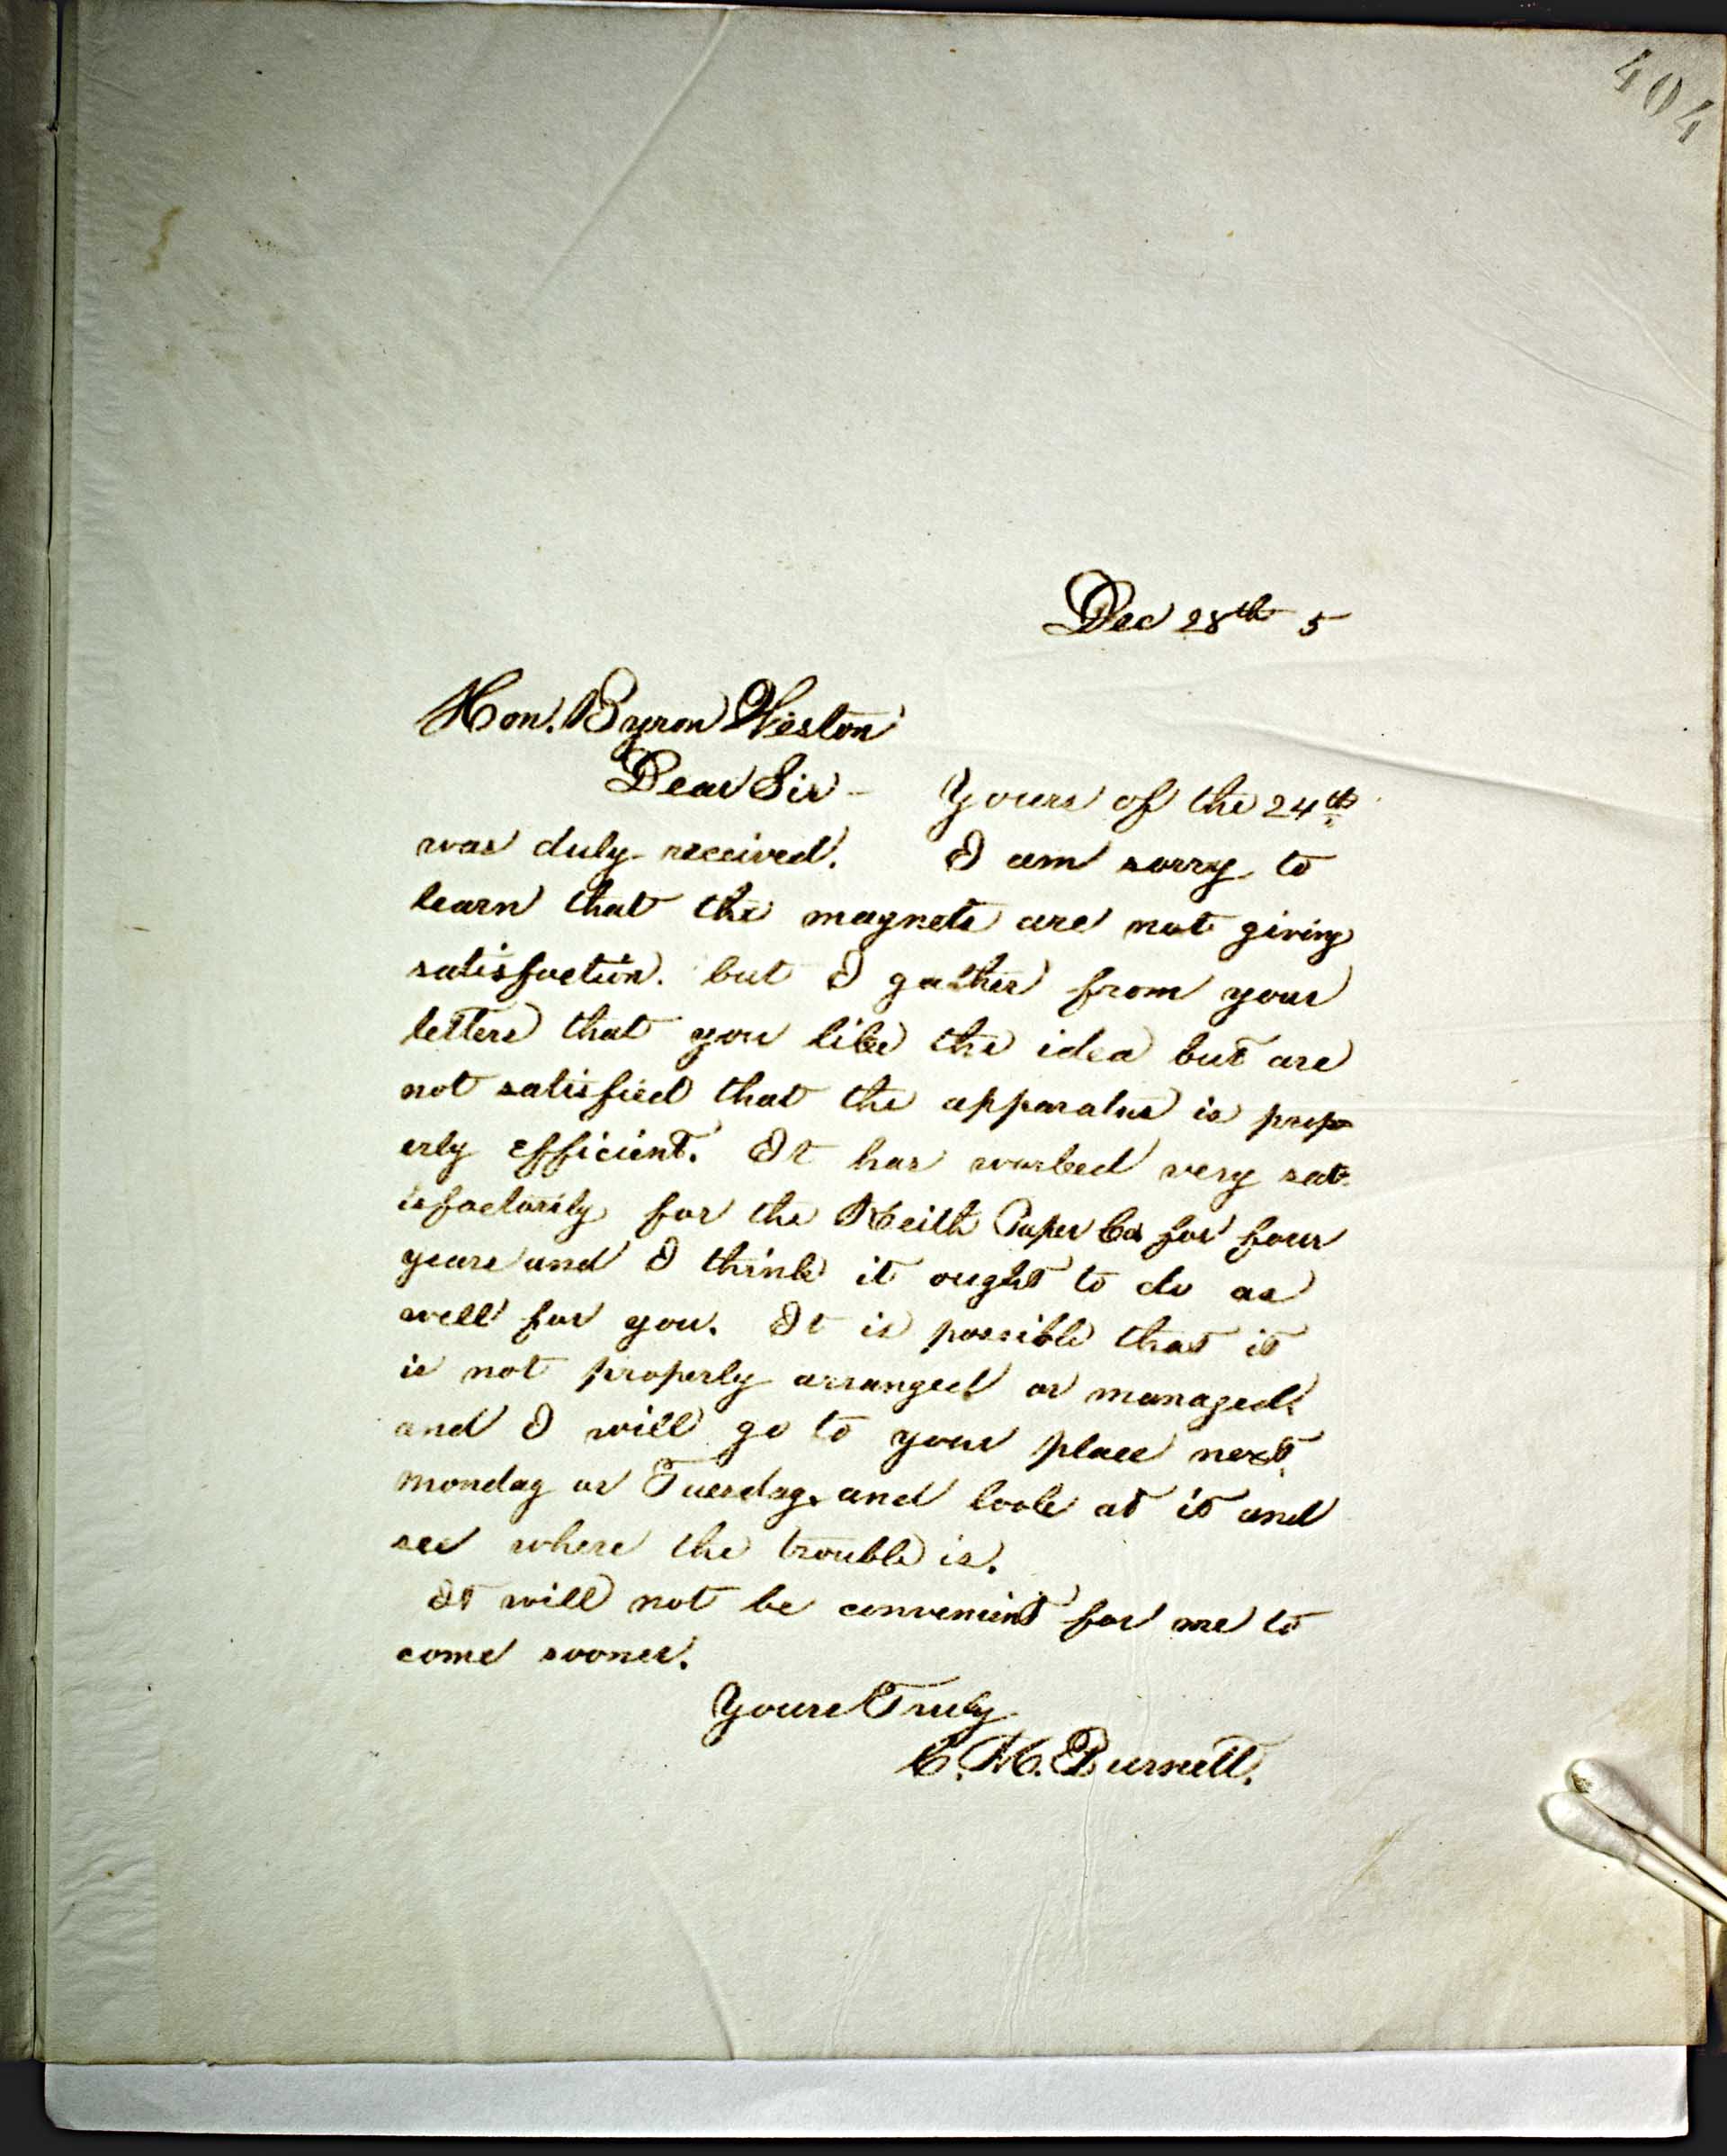 404
Dec 28th 5
Hon. Byron Weston
Dear Sir - Yours of the 24th
was duly received. I am sorry to
learn that the magnets are not giving
satisfaction. but I gather from your
letters that you like the idea but are
not satisfied that the apparatus is prop-
erly efficient. It has worked very sat-
isfactorily for the Keith Paper Co for four
years and I think it ought to do as
well for you. It is possible that it
is not properly arranged or managed.
and I will go to your place next
Monday or Tuesday. and look at it and
see where the trouble is.
It will not be convenient for me to
come sooner.
Yours Truly
C. H. Burnett.